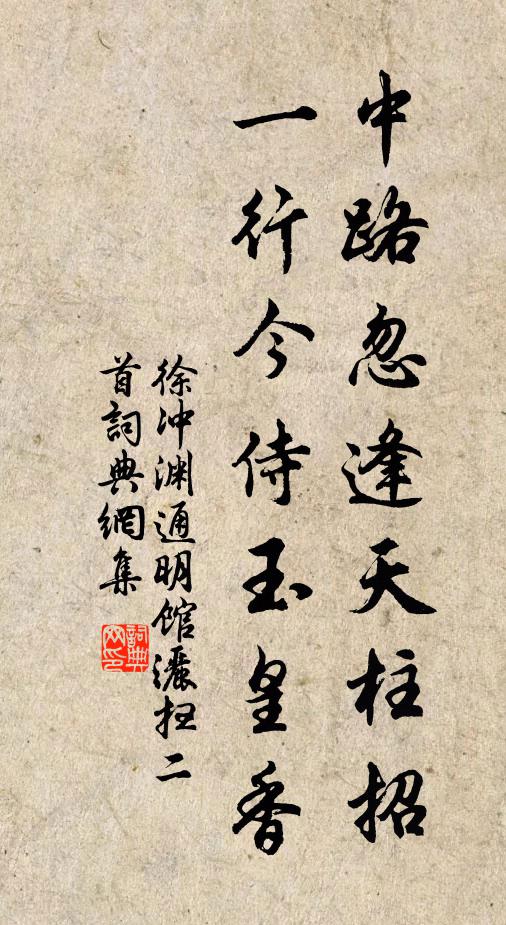 中路忽逢天柱招
一行今侍玉皇香
徐冲渊通明馆灑扫二
首詞典網集
詞典
网印